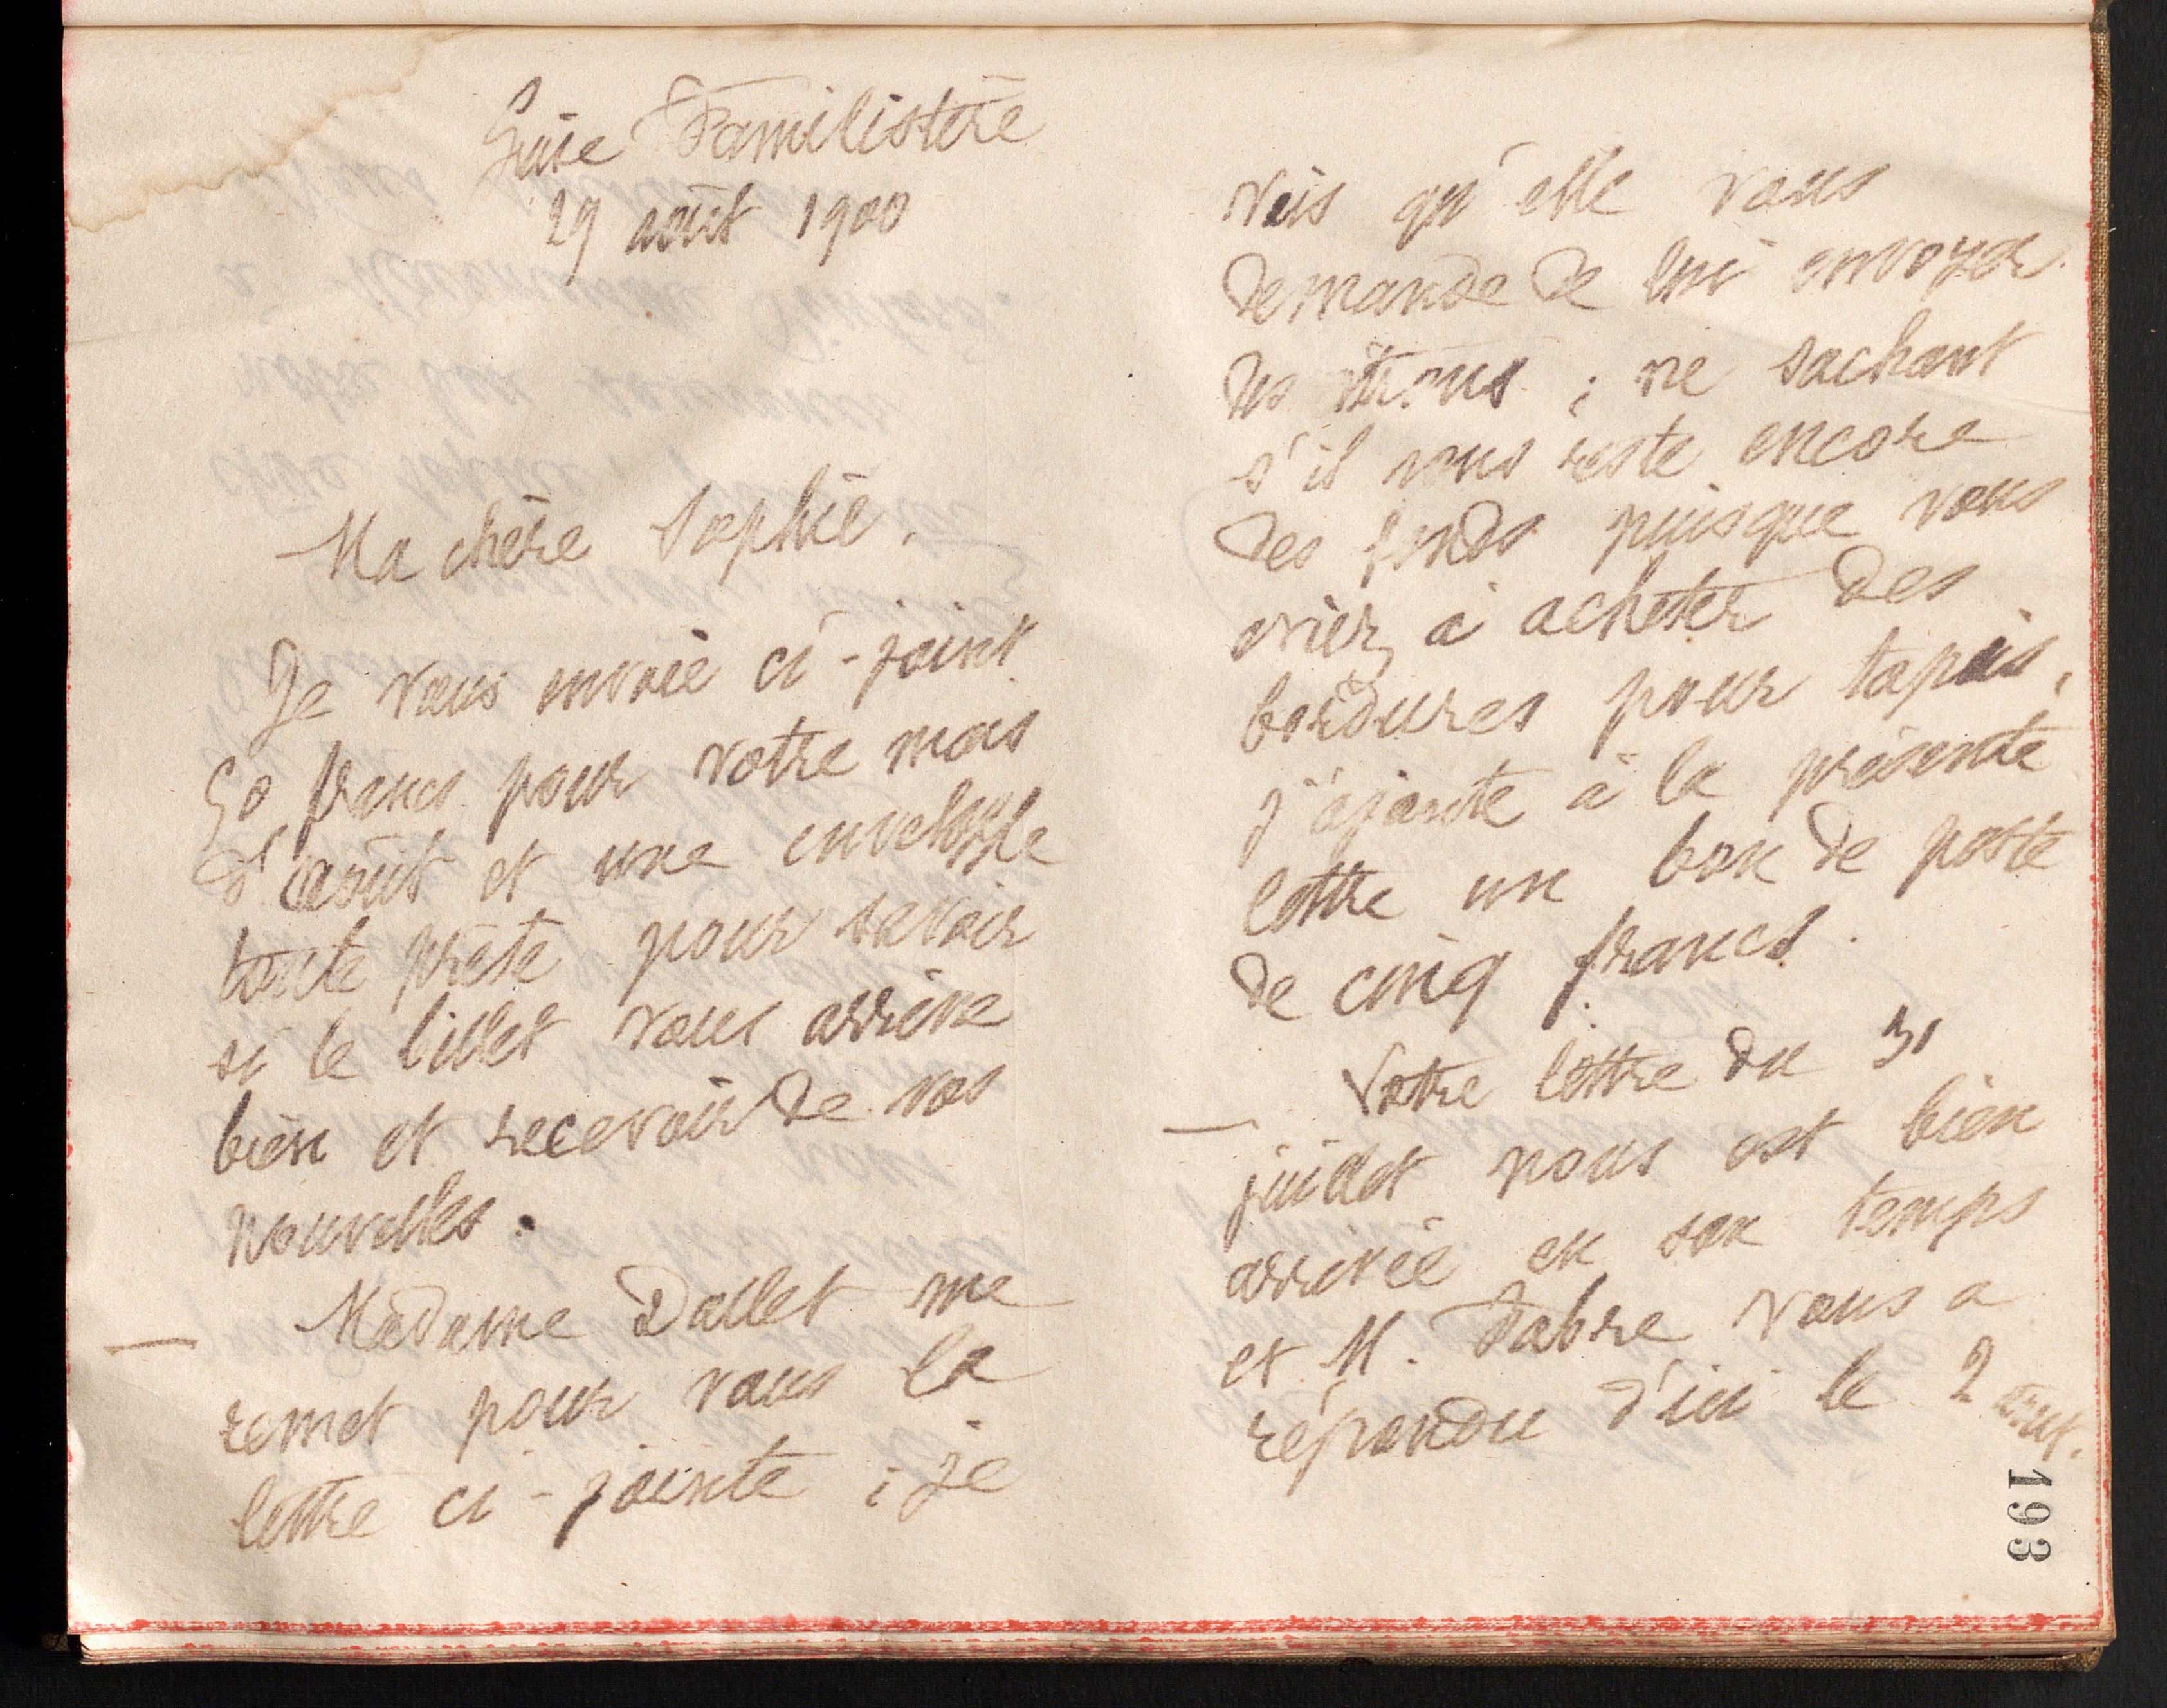 Guise Familistère
29 août 1900
Ma chère Sophie,
Je vous envoie ci-joint
50 francs pour votre mois
d'août et une enveloppe
toute prête pour savoir
si le billet vous arrive
bien et recevoir de vos
nouvelles.
— Madame Dallet me
remet pour vous la
lettre ci-jointe ; je
vois qu'elle vous
demande de lui envoyer
des ; ne sachant
s'il vous reste encore
des fonds puisque vous
aviez à acheter des
bordures pour tapis,
j'ajoute à la présente
lettre un bon de poste
de cinq francs.
— Votre lettre du 31
juillet nous est bien
arrivée en son temps
et M. Fabre vous a
répondu d'ici le 2 août.
193